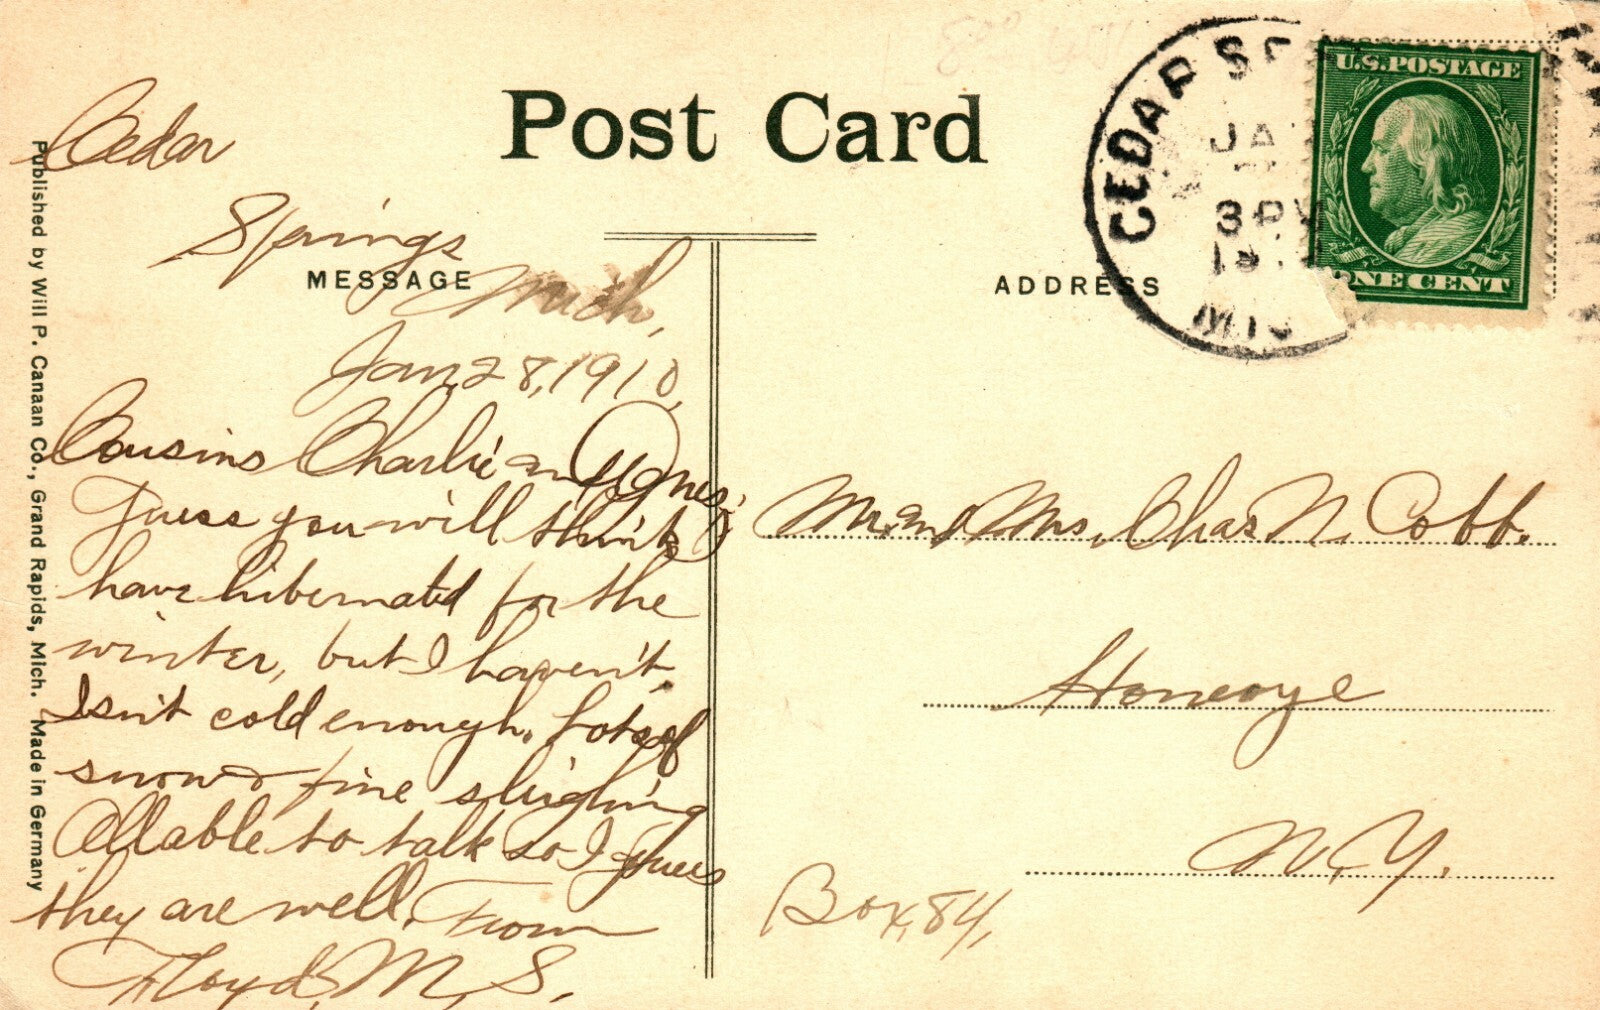 Post Card
MESSAGE
ADDRESS
Published by Will P. Canaan Co., Grand Rapids, Mich. Made in Germany
CEDAR SP
JA
3 PM
191
MIC
U.S. POSTAGE
ONE CENT
Cedar
Springs
Mich,
Jan, 28, 1910,
Cousins Charlie and Agnes;
Guess you will think I
have hibernated for the
winter, but I haven't,
Isn't cold enough. Lots of
snow & fine sleighing
All able to talk so I guess
they are well. From
Floyd, M, S,
Mr. and Mrs. Chas N. Cobb.
Honeoye
N. Y.
Box, 84,